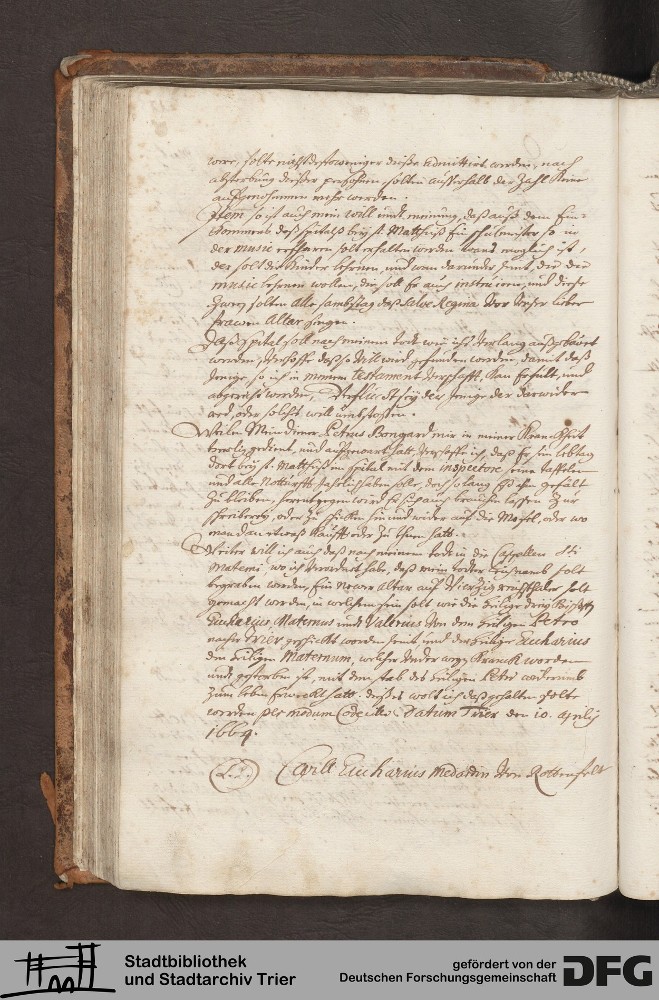 were, solte nichts destoweniger dieße admittirt werden, nach
absterbung dießer persohnen sollen ausserhalb der Zahl keine
auffgenohmmen mehr werden.
Item so ist auch mein will undt meinung, daß auß dem Ein-
kommens, deß spitals bey st. Mattheiß ein schulmeister so in
der music erfahren solt erhalten werden wans moglich ist,
der solt die Kinder lehrnen, und wan darunder seint, die die
music lehrnen wollen, die soll Er auch instruiren, und dieße
zwey solten alle sambstag daß Salve Regina vor Unser lieber
frawen Altar singen.
Daß spital soll nach meinem todt wie ichs verlang außgebawet
werden, verhoffe daß so vill wird gefunden werden, damit daß
Jenige, so ich in meinem testament verschafft, kan erfült, und
abgericht werden, verflucht sey der jenige der darwider
red, oder solches will umbstossen.
Weilen Mein diener Petrus Bongard mir in meiner Kranckheit
trewlig gedient, und auffgewart hatt, verschaffe ich, daß Er sein lebtag
dort bey st. Mattheiß im spital mit dem inspectore seine taffel
und alle Notturfft Jahrlichs haben solle, doch so lang es ihm gefält
zu bleiben, herentgegen wird Er sich auch brauchen lassen zur
schreiberey, oder zu schicken hin und wider auff die Mosel, oder wo
man dan etwaß kaufft oder zu thuen hatt.
Weiter will ich auch daß nach meinem todt in die Capellen Sti
Materni, wo ich verordnet habe, daß mein todter leichnamb solt
begraben werden, Ein newer altar auff vierzig reichsthaler solt
gemacht werden, in welchem sein solt wie die heilige drey Bischoff
Eucharius, Maternus undt Vallerius von dem heiligen Petro
nacher Trier geschickt worden seint und der heiliger Eucharius
den heiligen Maternum, welcher under wegs kranck worden
undt gestorben ist, mit dem stab des heiligen Petri widerumb
zum leben Erweckt hatt. dießes wolt ich daß gehalten solte
werden per modum Codicilli. Datum Trier den 10. Aprilis
1664.
(L.S.) Carll Eucharius Medardin von Rottenfelt
Stadtbibliothek
und Stadtarchiv Trier
gefördert von der
Deutschen Forschungsgemeinschaft
DFG